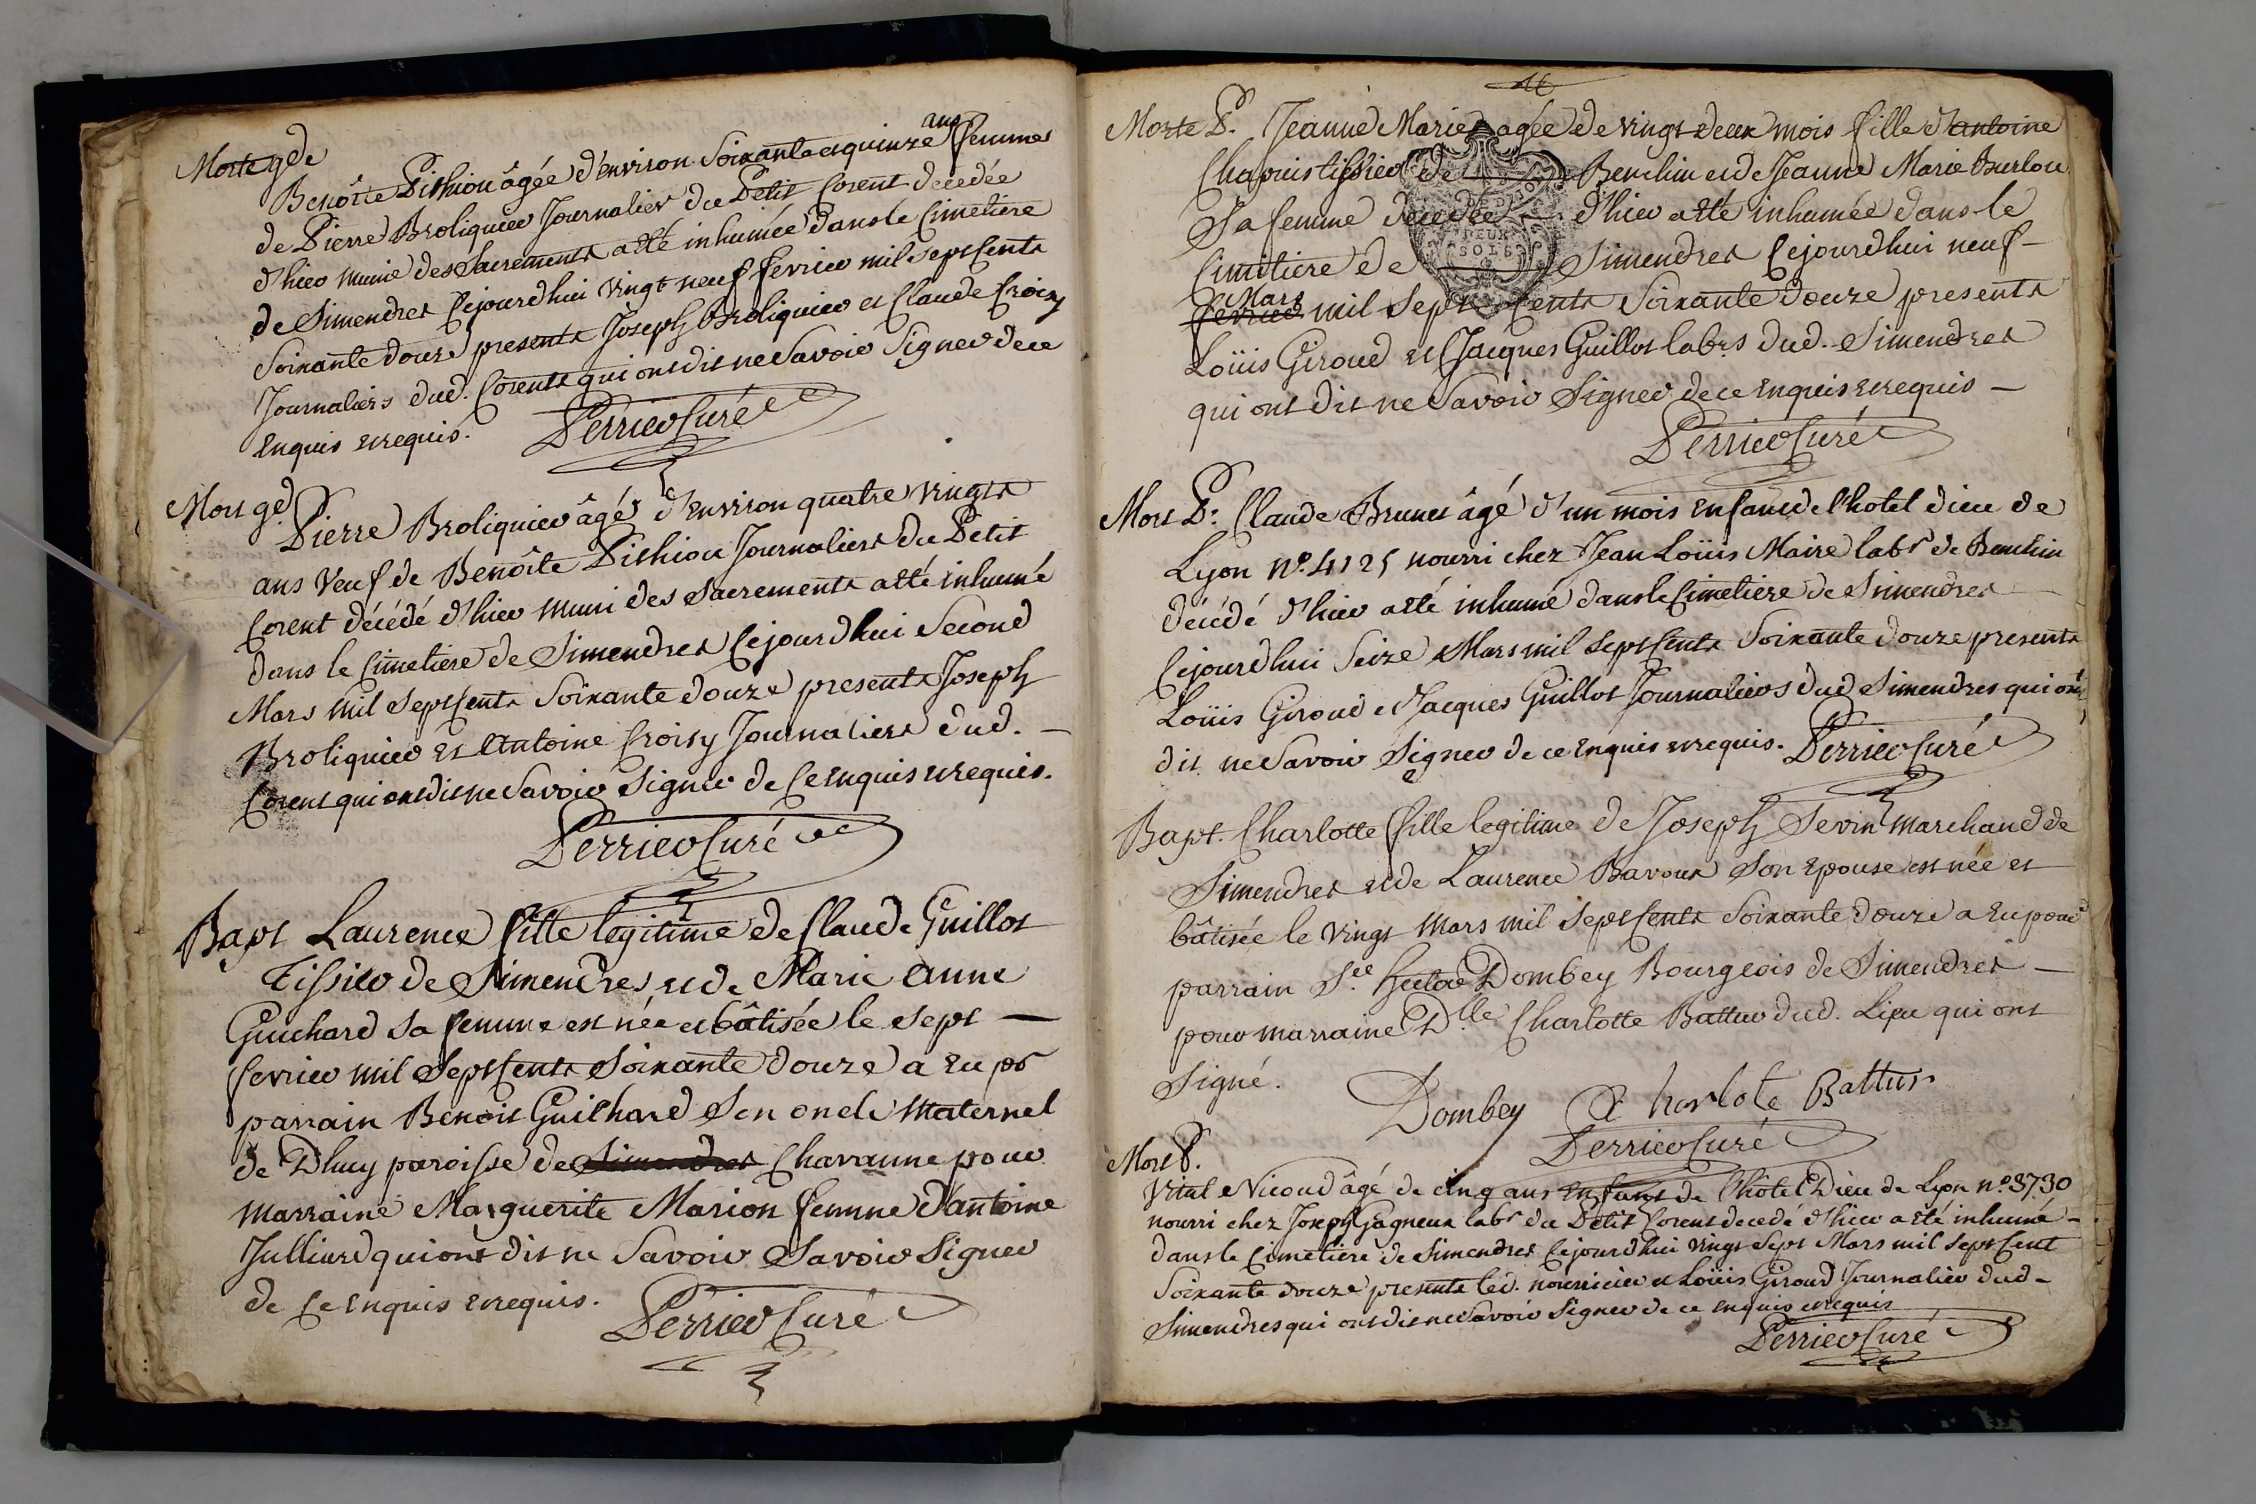 Morte gde
Benoîte Pithiou âgée d'environ Soixante et quinze ans femme
de Pierre Broliquier Journalier du Petit Corent decedée
d'hier munie des Sacrements a été inhumée dans le Cimetiere
de Simendres Cejourdhui vingt neuf fevrier mil sept Cents
Soixante douze presents Joseph Broliquier et Claude Croisy
Journaliers dud. Corents qui ont dit ne Savoir Signer de ce
enquis et requis.
Perrier Curé
Mort gd
Pierre Broliquier âgé d'environ quatre vingts
ans Veuf de Benoîte Pithiou Journaliers du Petit
Corent décédé d'hier muni des Sacrements a été inhumé
dans le Cimetiere de Simendres Cejourdhui Second
Mars mil Sept Cents Soixante douze presents Joseph
Broliquier et Antoine Croisy Journaliers dud. —
Corent qui ont dit ne Savoir Signer de Ce enquis et requis.
Perrier Curé
Bapt Laurence fille legitime de Claude Guillot
Tissier de Simendres et de Marie Anne
Guichard Sa femme est née et bâtisée le Sept —
fevrier mil Sept Cents Soixante douze a Eu pr
parrain Benoit Guichard Son oncle Maternel
de Dhuy paroisse de Simendres Chavanne pour
marraine Marguerite Marion femme d'antoine
Julliard qui ont dit ne Savoir Savoir Signer
de Ce enquis et requis.
Perrier Curé
Morte P. Jeanne Marie agée de vingt deux mois fille d'antoine
Chapuis tissier de Benchin et de Jeanne Marie Burlou
Sa femme decedée d'hier a été inhumée dans le
Cimetiere de Simendres Cejourdhui neuf —
Mars
fevrier mil Sept Cents Soixante douze presents
DEUX
SOLS
Loüis Giroud et Jacques Guillot labrs dud. Simendres
qui ont dit ne Savoir Signer de ce enquis et requis —
Perrier Curé
Mort P. Claude Brunet âgé d'un mois enfant de l'hotel dieu de
Lyon no. 4125 nourri chez Jean Loüis Maire labr de Benchin
décédé d'hier a été inhumé dans le Cimetiere de Simendres —
Cejourdhui Seize Mars mil Sept Cents Soixante douze presents
Loüis Giroud et Jacques Guillot Journaliers dud Simendres qui ont
dit ne Savoir Signer de ce enquis et requis. Perrier Curé
Bapt. Charlotte fille legitime de Joseph Sevin Marchand de
Simendres et de Laurence Bavoux Son Epouse est née et
bâtisée le vingt Mars mil Sept Cents Soixante douze a Eu pour
parrain Sr. Dombey Bourgeois de Simendres —
pour marraine Dlle Charlotte Battur dud. Lieu qui ont
Signé.
Dombey Charlote Battur
Perrier Curé
Mort P.
Vital Nicoud âgé de cinq ans enfant de l'hôtel Dieu de Lyon no. 3730
nourri chez Joseph Gagneux labr du Petit Corent decedé d'hier a été inhumé —
dans le Cimetiere de Simendres Cejourdhui vingt Sept Mars mil Sept Cent
Soixante douze presents led. nourricier et Loüis Giroud Journalier dud —
Simendres qui ont dit ne Savoir Signer de ce enquis et requis
Perrier Curé